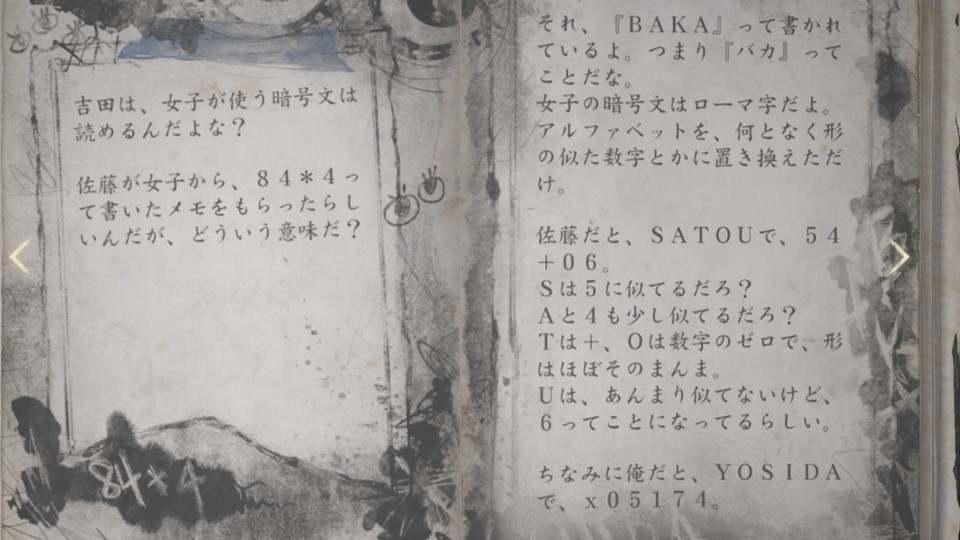 吉田は、女子が使う暗号文は
読めるんだよな？
佐藤が女子から、８４＊４っ
て書いたメモをもらったらし
いんだが、どういう意味だ？
84*4
それ、『ＢＡＫＡ』って書かれ
ているよ。つまり『バカ』って
ことだな。
女子の暗号文はローマ字だよ。
アルファベットを、何となく形
の似た数字とかに置き換えただ
け。
佐藤だと、ＳＡＴＯＵで、５４
＋０６。
Ｓは５に似てるだろ？
Ａと４も少し似てるだろ？
Ｔは＋、Ｏは数字のゼロで、形
はほぼそのまんま。
Ｕは、あんまり似てないけど、
６ってことになってるらしい。
ちなみに俺だと、ＹＯＳＩＤＡ
で、ｘ０５１７４。